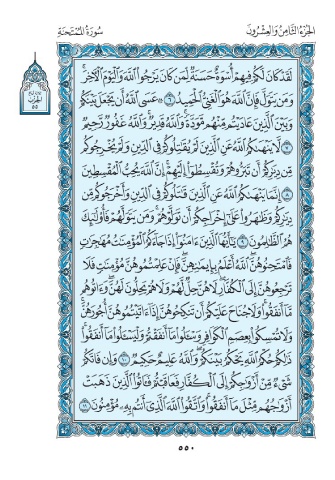 الجزء الثامن والعشرون
سورة الممتحنة
لَقَدْ كَانَ لَكُمْ فِيهِمْ أُسْوَةٌ حَسَنَةٌ لِّمَن كَانَ يَرْجُوا۟ ٱللَّهَ وَٱلْيَوْمَ ٱلْءَاخِرَ ۚ
وَمَن يَتَوَلَّ فَإِنَّ ٱللَّهَ هُوَ ٱلْغَنِىُّ ٱلْحَمِيدُ ٦ ۞ عَسَى ٱللَّهُ أَن يَجْعَلَ بَيْنَكُمْ
وَبَيْنَ ٱلَّذِينَ عَادَيْتُم مِّنْهُم مَّوَدَّةً ۚ وَٱللَّهُ قَدِيرٌ ۚ وَٱللَّهُ غَفُورٌ رَّحِيمٌ
٧ لَّا يَنْهَىٰكُمُ ٱللَّهُ عَنِ ٱلَّذِينَ لَمْ يُقَٰتِلُوكُمْ فِى ٱلدِّينِ وَلَمْ يُخْرِجُوكُم
مِّن دِيَٰرِكُمْ أَن تَبَرُّوهُمْ وَتُقْسِطُوٓا۟ إِلَيْهِمْ ۚ إِنَّ ٱللَّهَ يُحِبُّ ٱلْمُقْسِطِينَ
٨ إِنَّمَا يَنْهَىٰكُمُ ٱللَّهُ عَنِ ٱلَّذِينَ قَٰتَلُوكُمْ فِى ٱلدِّينِ وَأَخْرَجُوكُم مِّن
دِيَٰرِكُمْ وَظَٰهَرُوا۟ عَلَىٰٓ إِخْرَاجِكُمْ أَن تَوَلَّوْهُمْ ۚ وَمَن يَتَوَلَّهُمْ فَأُو۟لَٰٓئِكَ
هُمُ ٱلظَّٰلِمُونَ ٩ يَٰٓأَيُّهَا ٱلَّذِينَ ءَامَنُوٓا۟ إِذَا جَآءَكُمُ ٱلْمُؤْمِنَٰتُ مُهَٰجِرَٰتٍ
فَٱمْتَحِنُوهُنَّ ۖ ٱللَّهُ أَعْلَمُ بِإِيمَٰنِهِنَّ ۖ فَإِنْ عَلِمْتُمُوهُنَّ مُؤْمِنَٰتٍ فَلَا
تَرْجِعُوهُنَّ إِلَى ٱلْكُفَّارِ ۖ لَا هُنَّ حِلٌّ لَّهُمْ وَلَا هُمْ يَحِلُّونَ لَهُنَّ ۖ وَءَاتُوهُم
مَّآ أَنفَقُوا۟ ۚ وَلَا جُنَاحَ عَلَيْكُمْ أَن تَنكِحُوهُنَّ إِذَآ ءَاتَيْتُمُوهُنَّ أُجُورَهُنَّ ۚ
وَلَا تُمْسِكُوا۟ بِعِصَمِ ٱلْكَوَافِرِ وَسْـَٔلُوا۟ مَآ أَنفَقْتُمْ وَلْيَسْـَٔلُوا۟ مَآ أَنفَقُوا۟ ۚ
ذَٰلِكُمْ حُكْمُ ٱللَّهِ ۖ يَحْكُمُ بَيْنَكُمْ ۚ وَٱللَّهُ عَلِيمٌ حَكِيمٌ ١٠ وَإِن فَاتَكُمْ
شَىْءٌ مِّنْ أَزْوَٰجِكُمْ إِلَى ٱلْكُفَّارِ فَعَاقَبْتُمْ فَـَٔاتُوا۟ ٱلَّذِينَ ذَهَبَتْ
أَزْوَٰجُهُم مِّثْلَ مَآ أَنفَقُوا۟ ۚ وَٱتَّقُوا۟ ٱللَّهَ ٱلَّذِىٓ أَنتُم بِهِۦ مُؤْمِنُونَ ١١
٥٥٠